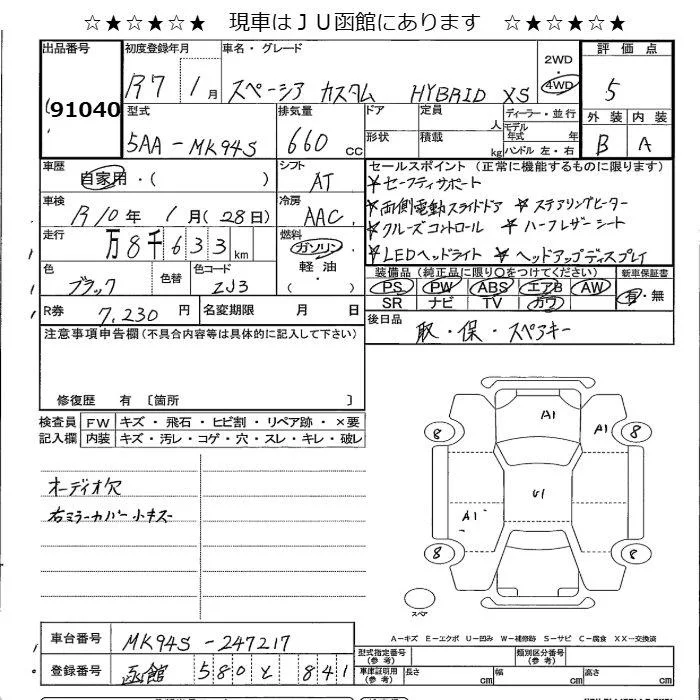 ☆★☆★☆★　現車はＪＵ函館にあります　☆★☆★☆★
出品番号
91040
初度登録年月
R7 1月
車名・グレード
スペーシア カスタム HYBRID XS
2WD
4WD
評価点
5
型式
5AA-MK94S
排気量
660 cc
ドア
定員
人
形状
積載
kg
ディーラー・並行
モデル年式 年
ハンドル 左・右
外装
内装
B
A
車歴
自家用・( )
シフト
AT
車検
R10年 1月(28日)
冷房
AAC
走行
万8千633km
燃料
ガソリン
軽油
( )
色
ブラック
色替
色コード
ZJ3
R券
7,230 円
名変期限 月 日
セールスポイント (正常に機能するものに限ります)
★セーフティサポート
★両側電動スライドドア ★ステアリングヒーター
★クルーズコントロール ★ハーフレザーシート
★LEDヘッドライト ★ヘッドアップディスプレイ
装備品 (純正品に限り○をつけてください)
新車保証書
PS PW ABS エアB AW
SR ナビ TV カワ
有・無
後日品
取・保・スペアキー
注意事項申告欄(不具合内容等は具体的に記入して下さい)
修復歴 有 〔箇所 〕
検査員記入欄
FW キズ・飛石・ヒビ割・リペア跡・×要
内装 キズ・汚レ・コゲ・穴・スレ・キレ・破レ
オーディオ欠
右ミラーカバー小キズ
A1
A1
8
8
U1
A1
8
8
スペア
A－キズ E－エクボ U－凹み W－補修跡 S－サビ C－腐食 XX－交換済
車台番号
MK94S-247217
登録番号
函館 580 と 841
型式指定番号
(参考)
類別区分番号
(参考)
車庫証明用
(参考)
長さ cm
幅 cm
高さ cm